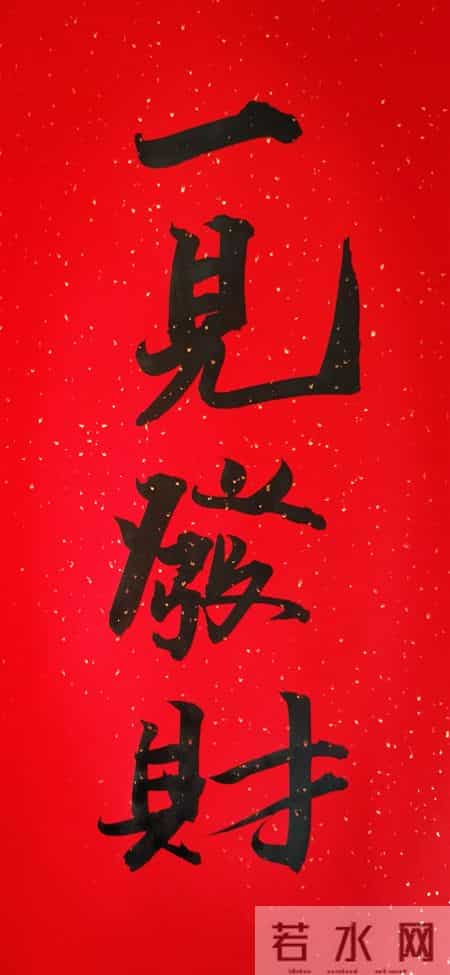 一見發財
若水网